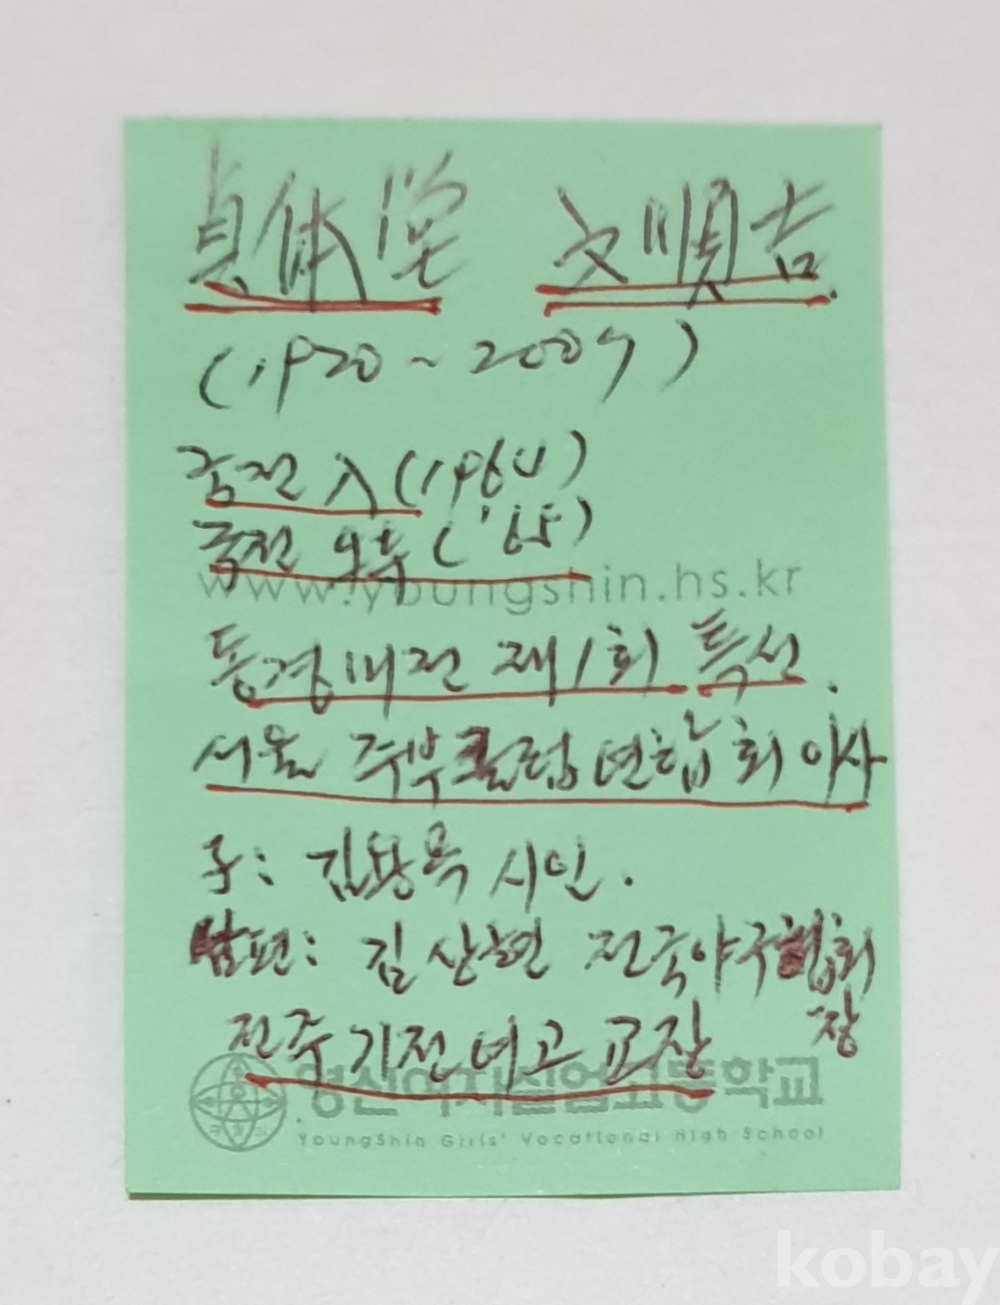 貞体堂 文順吉
(1920~2007)
국전 入(1964)
국전 오후('65)
www.youngshin.hs.kr
동경비전 제1회 특선.
서울 주부클럽 연합회 이사
子: 김용옥 시인.
남편: 김상현 전국야구협회
장
전주기전여고 교장
영신여자실업고등학교
YoungShin Girls' Vocational High School
kobay